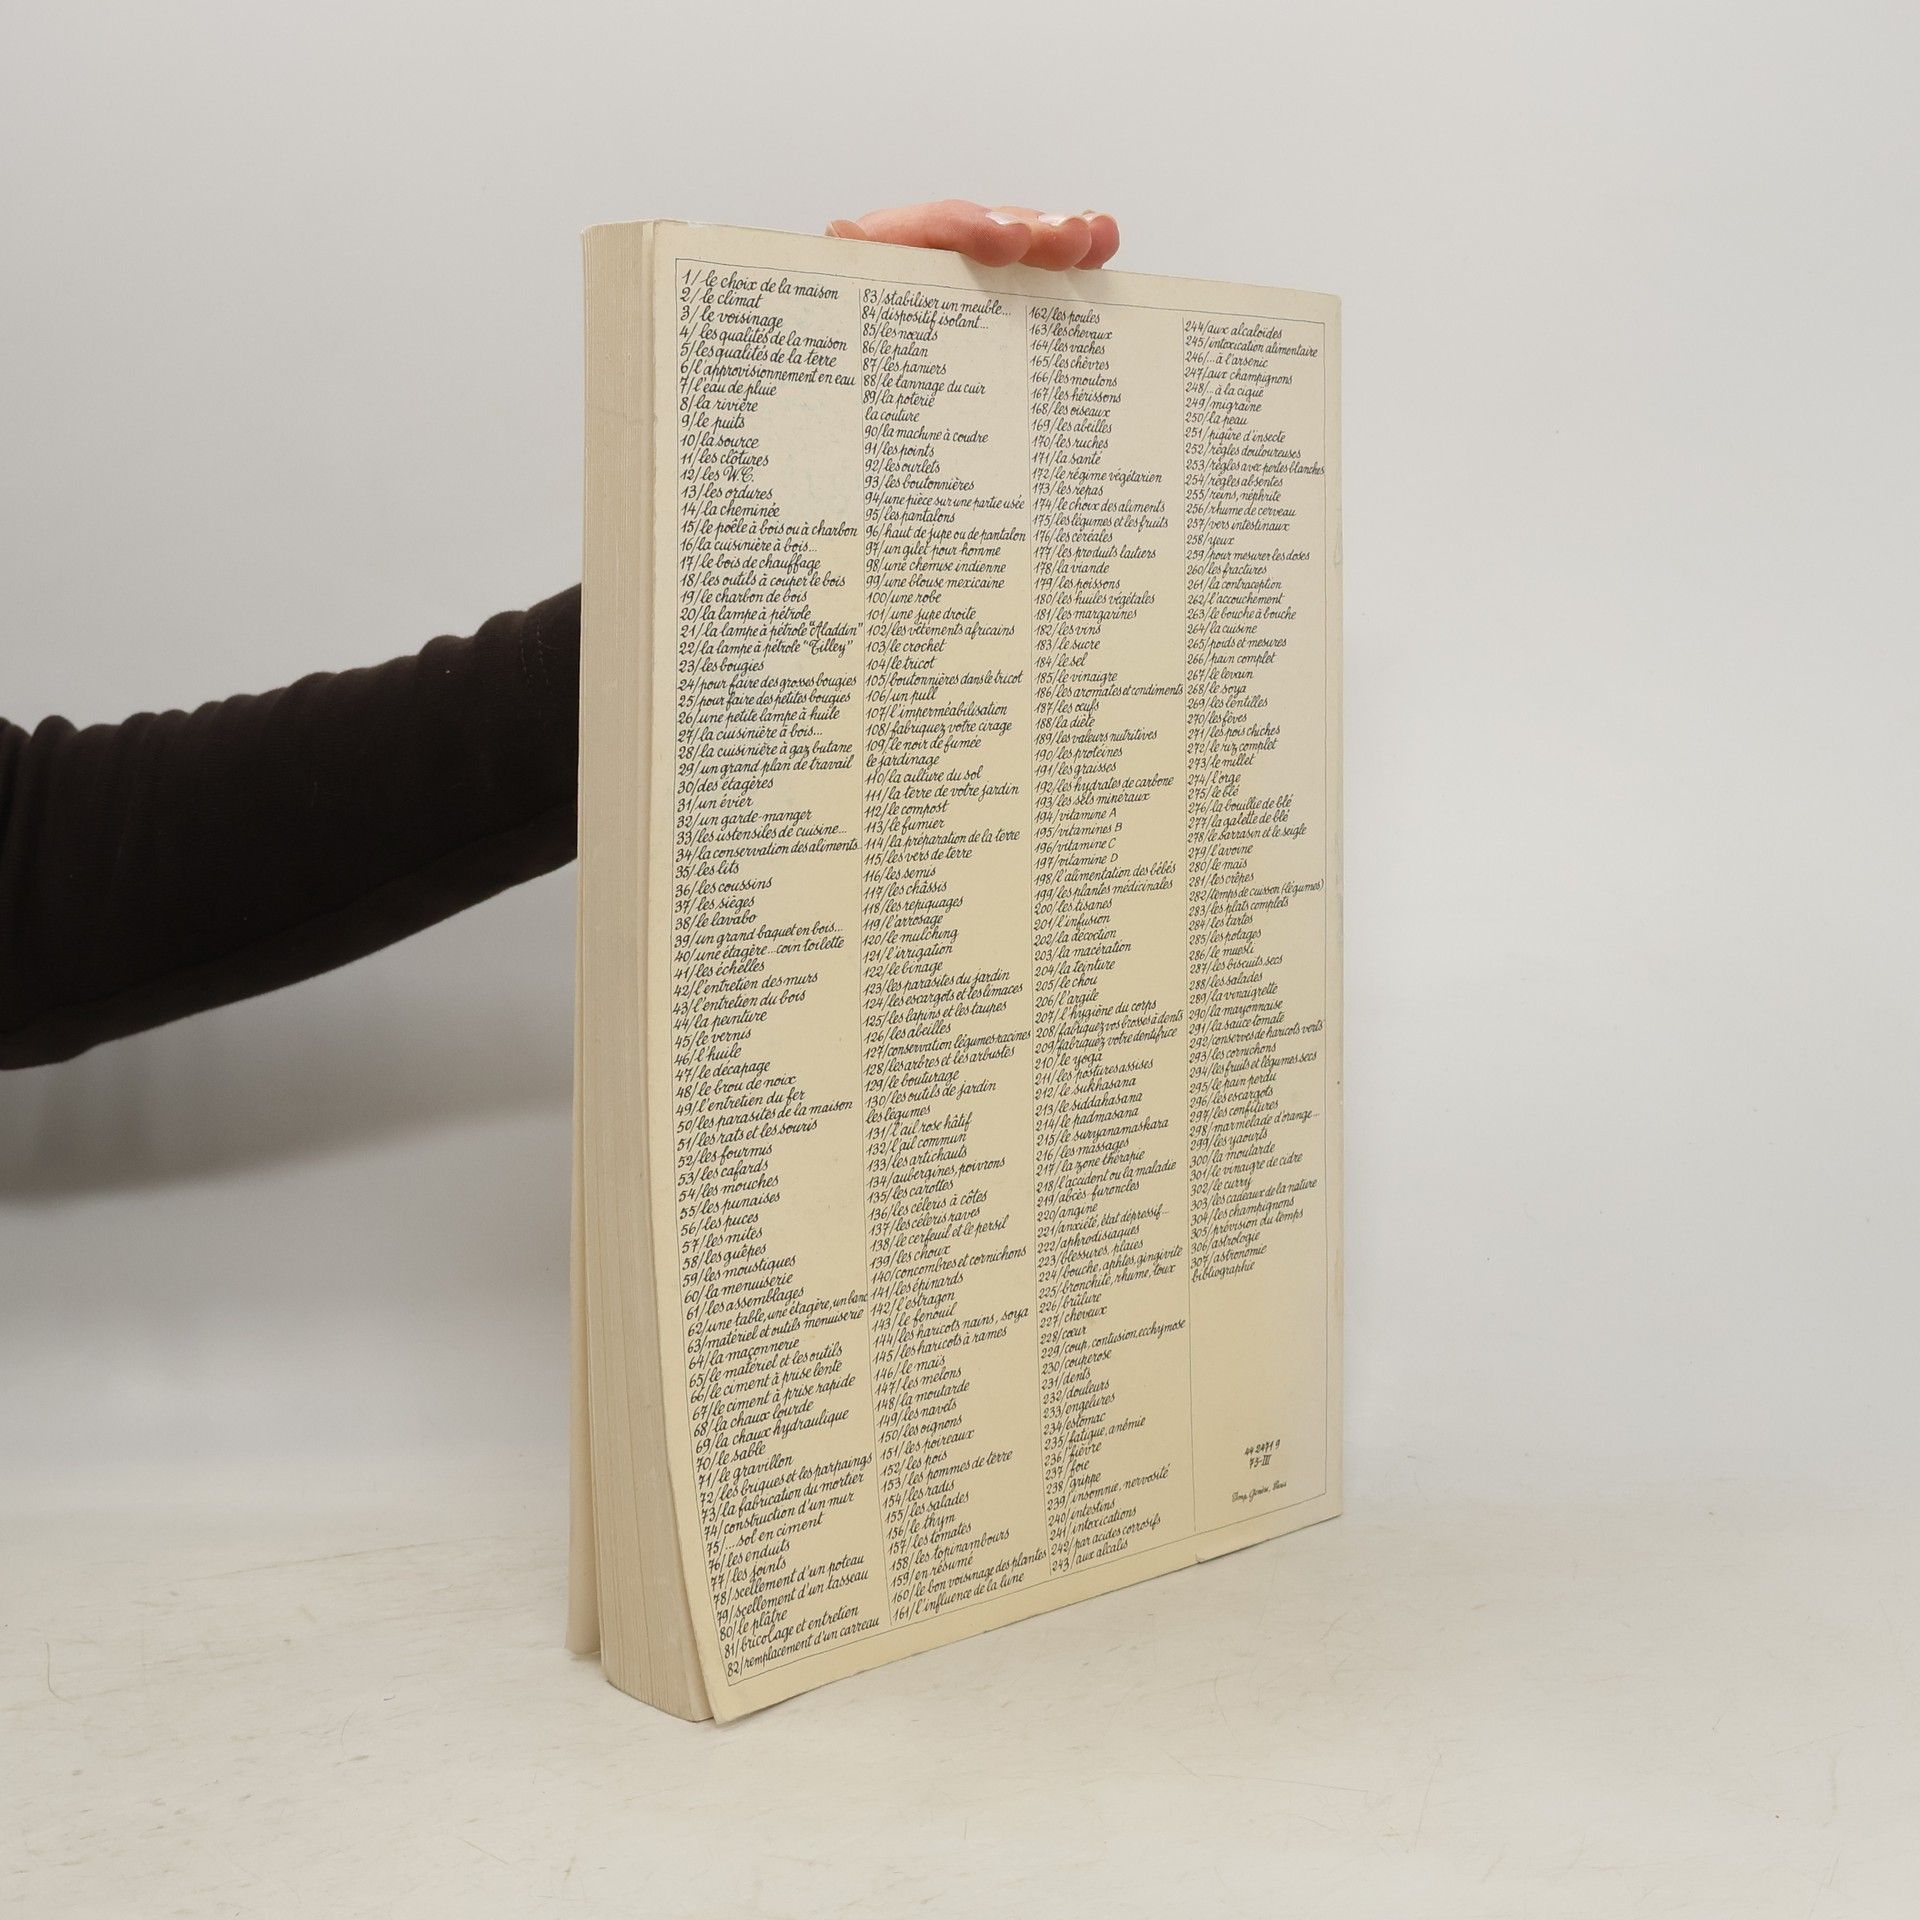 1/le choix de la maison
2/le climat
3/le voisinage
4/les qualités de la maison
5/les qualités de la terre
6/l'approvisionnement en eau
7/l'eau de pluie
8/la rivière
9/le puits
10/la source
11/les clôtures
12/les W.C.
13/les ordures
14/la cheminée
15/le poêle à bois ou à charbon
16/la cuisinière à bois...
17/le bois de chauffage
18/les outils à couper le bois
19/le charbon de bois
20/la lampe à pétrole
21/la lampe à pétrole "Aladdin"
22/la lampe à pétrole "Tilley"
23/les bougies
24/pour faire des grosses bougies
25/pour faire des petites bougies
26/une petite lampe à huile
27/la cuisinière à bois...
28/la cuisinière à gaz butane
29/un grand plan de travail
30/des étagères
31/un évier
32/un garde-manger
33/les ustensiles de cuisine...
34/la conservation des aliments...
35/les lits
36/les coussins
37/les sièges
38/le lavabo
39/un grand baquet en bois...
40/une étagère...coin toilette
41/les échelles
42/l'entretien des murs
43/l'entretien du bois
44/la peinture
45/le vernis
46/l'huile
47/le décapage
48/le brou de noix
49/l'entretien du fer
50/les parasites de la maison
51/les rats et les souris
52/les fourmis
53/les cafards
54/les mouches
55/les punaises
56/les puces
57/les mites
58/les guêpes
59/les moustiques
60/la menuiserie
61/les assemblages
62/une table, une étagère, un banc
63/matériel et outils menuiserie
64/la maçonnerie
65/le matériel et les outils
66/le ciment à prise lente
67/le ciment à prise rapide
68/la chaux lourde
69/la chaux hydraulique
70/le sable
71/le gravillon
72/les briques et les parpaings
73/la fabrication du mortier
74/construction d'un mur
75/...sol en ciment
76/les enduits
77/les joints
78/scellement d'un poteau
79/scellement d'un tasseau
80/le plâtre
81/bricolage et entretien
82/remplacement d'un carreau
83/stabiliser un meuble...
84/dispositif isolant...
85/les nœuds
86/le palan
87/les paniers
88/le tannage du cuir
89/la poterie
la couture
90/la machine à coudre
91/les points
92/les ourlets
93/les boutonnières
94/une pièce sur une partie usée
95/les pantalons
96/haut de jupe ou de pantalon
97/un gilet pour homme
98/une chemise indienne
99/une blouse mexicaine
100/une robe
101/une jupe droite
102/les vêtements africains
103/le crochet
104/le tricot
105/boutonnières dans le tricot
106/un pull
107/l'imperméabilisation
108/fabriquez votre cirage
109/le noir de fumée
le jardinage
110/la culture du sol
111/la terre de votre jardin
112/le compost
113/le fumier
114/la préparation de la terre
115/les vers de terre
116/les semis
117/les châssis
118/les repiquages
119/l'arrosage
120/le mulching
121/l'irrigation
122/le binage
123/les parasites du jardin
124/les escargots et les limaces
125/les lapins et les taupes
126/les abeilles
127/conservation légumes racines
128/les arbres et les arbustes
129/le bouturage
130/les outils de jardin
les légumes
131/l'ail rose hâtif
132/l'ail commun
133/les artichauts
134/aubergines, poivrons
135/les carottes
136/les céleris à côtes
137/les céleris raves
138/le cerfeuil et le persil
139/les choux
140/concombres et cornichons
141/les épinards
142/l'estragon
143/le fenouil
144/les haricots nains, soya
145/les haricots à rames
146/le maïs
147/les melons
148/la moutarde
149/les navets
150/les oignons
151/les poireaux
152/les pois
153/les pommes de terre
154/les radis
155/les salades
156/le thym
157/les tomates
158/les topinambours
159/en résumé
160/le bon voisinage des plantes
161/l'influence de la lune
162/les poules
163/les chevaux
164/les vaches
165/les chèvres
166/les moutons
167/les hérissons
168/les oiseaux
169/les abeilles
170/les ruches
171/la santé
172/le régime végétarien
173/les repas
174/le choix des aliments
175/les légumes et les fruits
176/les céréales
177/les produits laitiers
178/la viande
179/les poissons
180/les huiles végétales
181/les margarines
182/les vins
183/le sucre
184/le sel
185/le vinaigre
186/les aromates et condiments
187/les œufs
188/la diète
189/les valeurs nutritives
190/les protéines
191/les graisses
192/les hydrates de carbone
193/les sels minéraux
194/vitamine A
195/vitamines B
196/vitamine C
197/vitamine D
198/l'alimentation des bébés
199/les plantes médicinales
200/les tisanes
201/l'infusion
202/la décoction
203/la macération
204/la teinture
205/le chou
206/l'argile
207/l'hygiène du corps
208/fabriquez vos brosses à dents
209/fabriquez votre dentifrice
210/le yoga
211/les postures assises
212/le sukhasana
213/le siddahasana
214/le padmasana
215/le suryanamaskara
216/les massages
217/la zone thérapie
218/l'accident ou la maladie
219/abcès-furoncles
220/angine
221/anxiété, état dépressif...
222/aphrodisiaques
223/blessures, plaies
224/bouche, aphtes, gingivite
225/bronchite, rhume, toux
226/brûlure
227/cheveux
228/cœur
229/coup, contusion, ecchymose
230/couperose
231/dents
232/douleurs
233/engelures
234/estomac
235/fatigue, anémie
236/fièvre
237/foie
238/grippe
239/insomnie, nervosité
240/intestins
241/intoxications
242/par acides corrosifs
243/aux alcalis
244/aux alcaloïdes
245/intoxication alimentaire
246/...à l'arsenic
247/aux champignons
248/...à la ciguë
249/migraine
250/la peau
251/piqûre d'insecte
252/règles douloureuses
253/règles avec pertes blanches
254/règles absentes
255/reins, néphrite
256/rhume de cerveau
257/vers intestinaux
258/yeux
259/pour mesurer les doses
260/les fractures
261/la contraception
262/l'accouchement
263/le bouche à bouche
264/la cuisine
265/poids et mesures
266/pain complet
267/le levain
268/le soya
269/les lentilles
270/les fèves
271/les pois chiches
272/le riz complet
273/le millet
274/l'orge
275/le blé
276/la bouillie de blé
277/la galette de blé
278/le sarrasin et le seigle
279/l'avoine
280/le maïs
281/les crêpes
282/temps de cuisson (légumes)
283/les plats complets
284/les tartes
285/les potages
286/le muesli
287/les biscuits secs
288/les salades
289/la vinaigrette
290/la mayonnaise
291/la sauce tomate
292/conserves de haricots verts
293/les cornichons
294/les fruits et légumes secs
295/le pain perdu
296/les escargots
297/les confitures
298/marmelade d'orange...
299/les yaourts
300/la moutarde
301/le vinaigre de cidre
302/le curry
303/les cadeaux de la nature
304/les champignons
305/prévision du temps
306/astrologie
307/astronomie
bibliographie
44 2471 9
73-III
Imp. Paris